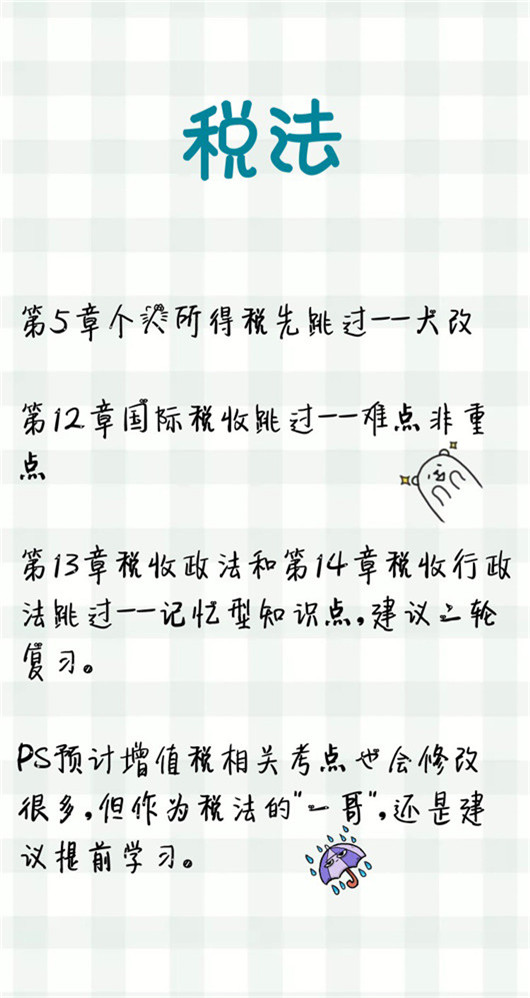 税法
第5章个人所得税先跳过——大改
第12章国际税收跳过——难点非重
点
第13章税收政法和第14章税收行政
法跳过——记忆型知识点,建议二轮
复习。
PS预计增值税相关考点也会修改
很多,但作为税法的"一哥",还是建
议提前学习。